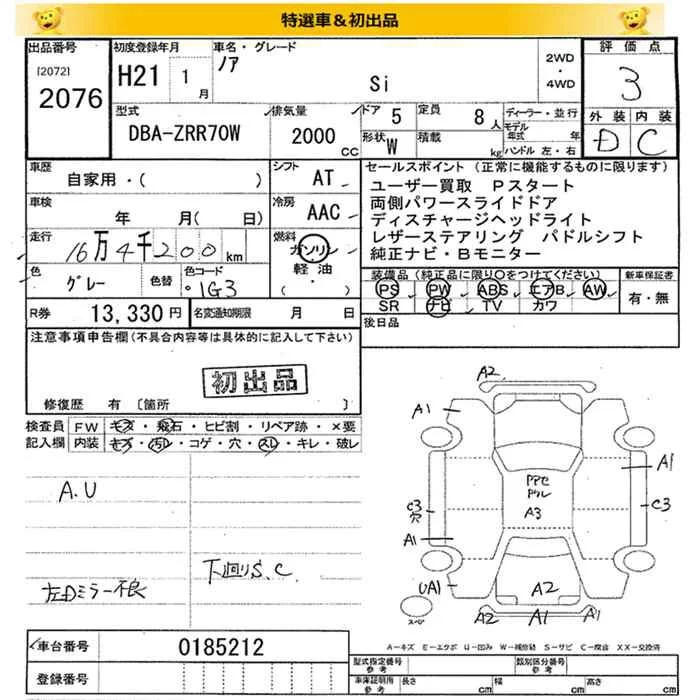 特選車&初出品
出品番号
[2072]
2076
初度登録年月
H21 1月
車名・グレード
ノア
Si
2WD・4WD
評価点
3
外装 内装
D C
型式
DBA-ZRR70W
排気量
2000cc
ドア 5
形状 W
定員 8人
積載 kg
ディーラー・並行
モデル年式 年
ハンドル 左・右
車歴
自家用・( )
シフト AT
車検
年 月( 日)
冷房 AAC
走行
16万4千200km
燃料
ガソリン
軽油・
色
グレー
色替
色コード
1G3
R券 13,330円
名変通知期限 月 日
セールスポイント(正常に機能するものに限ります)
ユーザー買取 Pスタート
両側パワースライドドア
ディスチャージヘッドライト
レザーステアリング パドルシフト
純正ナビ・Bモニター
装備品(純正品に限り○をつけてください)
PS PW ABS エアB AW
SR ナビ TV カワ
新車保証書
有・無
後日品
注意事項申告欄(不具合内容等は具体的に記入して下さい)
初出品
修復歴 有〔箇所 〕
検査員記入欄
FW キズ・飛石・ヒビ割・リペア跡・×要
内装 キズ・汚レ・コゲ・穴・スレ・キレ・破レ
A.U
左Dミラー不良
下廻りS.C
A2
A1
A1
C3
穴
C3
A1
UA1
A3
A2
A2
A1
A2
スペア
A-キズ E-エクボ U-凹み W-補修跡 S-サビ C-腐食 XX-交換済
車台番号 0185212
登録番号
型式指定番号 参考
類別区分番号 参考
車庫証明用 参考
長さ cm
幅 cm
高さ cm